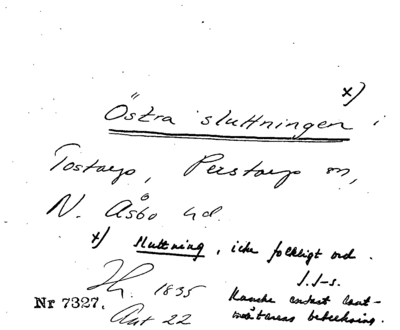 x)
Östra sluttningen i
Tostarp, Perstorp sn,
N. Åsbo hd.
x) sluttning, icke folkligt ord.
J.J-s.
1835 Kanske endast lant-
Nr 7327. Akt 22 mätarens beteckning.